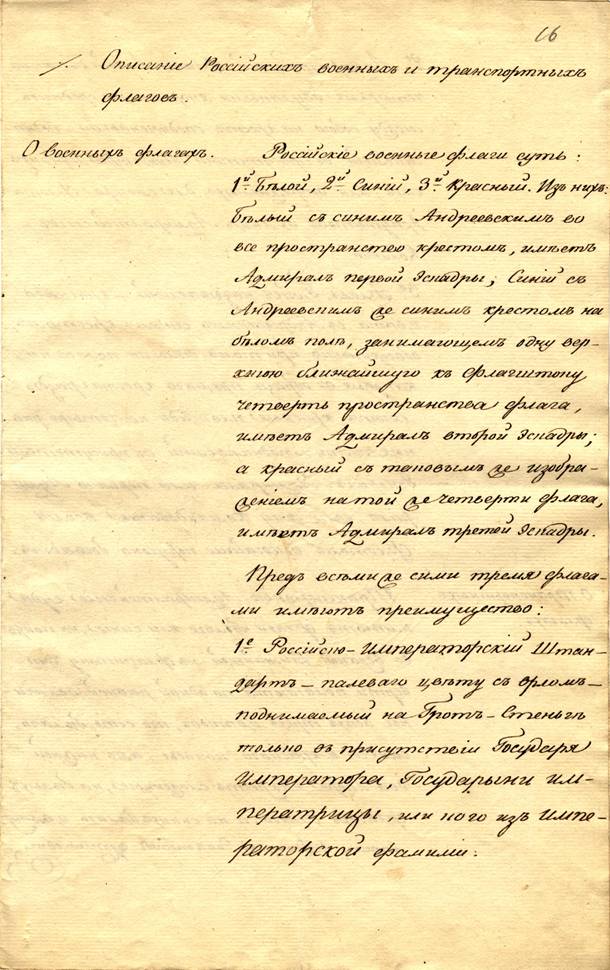 16
1. Описаніе Россійскихъ военныхъ и транспортныхъ
флаговъ.
О военныхъ флагахъ.
Россійскіе военные флаги суть:
1й Бѣлой, 2й Синій, 3й Красный. Изъ нихъ:
бѣлый съ синимъ Андреевскимъ во
все пространство крестомъ, имѣетъ
Адмиралъ первой Эскадры; Синій съ
Андреевскимъ же синимъ крестомъ на
бѣломъ полѣ, занимающемъ одну вер-
хнюю ближайшую къ флагштоку
четверть пространства флага,
имѣетъ Адмиралъ второй Эскадры;
а красный съ таковымъ же изобра-
женіемъ на той же четверти флага,
имѣетъ Адмиралъ третей Эскадры.
Предъ всѣми же сими тремя флага-
ми имѣютъ преимущество:
1е Россійско-Императорскій Штан-
дартъ - палеваго цвѣту съ орломъ -
поднимаемый на Гротъ-Стеньгѣ
только въ присутствіи Государя
Императора, Государыни Им-
ператрицы, или кого изъ Импе-
раторской фамиліи.